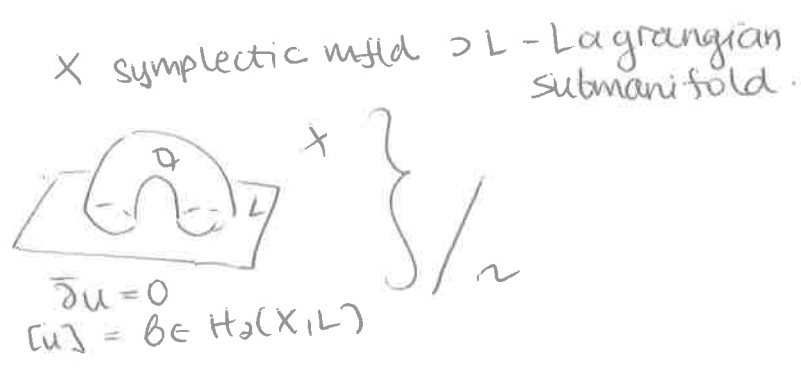 X symplectic mfld ⊃ L - Lagrangian
submanifold.
X
L
} / ~
∂̄u = 0
[u] = β ∈ H₂(X, L)